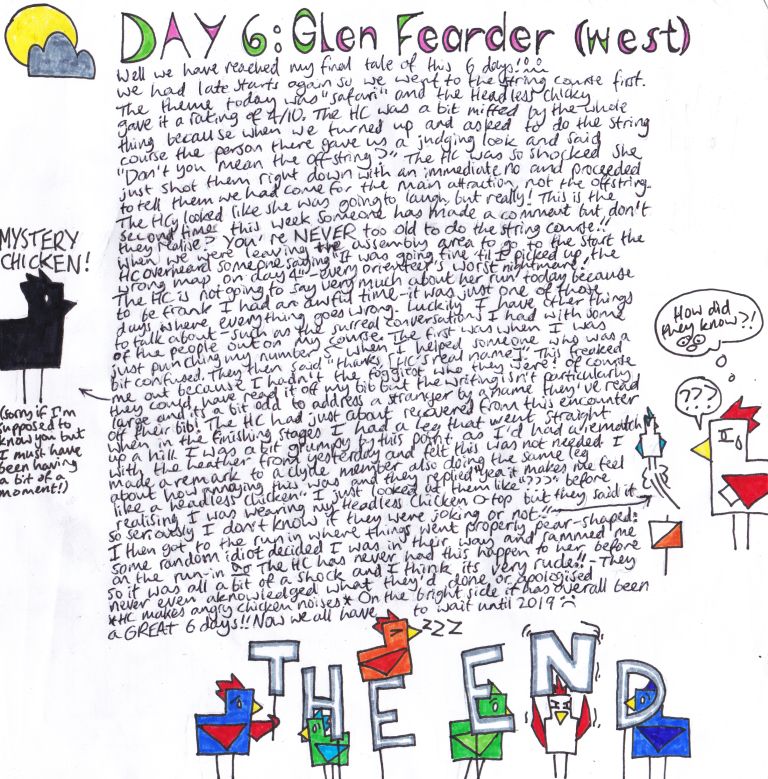 DAY 6: Glen Fearder (west)
Well we have reached my final tale of this 6 days!
we had late starts again so we went to the string course first.
The theme today was "safari" and the Headless Chicky
gave it a rating of 4/10. The HC was a bit miffed by the whole
thing because when we turned up and asked to do the string
course the person there gave us a judging look and said
"Don't you mean the off-string?" The HC was so shocked she
just shot them right down with an immediate no and proceeded
to tell them we had come for the main attraction, not the offstring.
The HCy looked like she was going to laugh, but really! This is the
second time this week someone has made a comment but don't
they realise? You're NEVER too old to do the string course!!
When we were leaving the assembly area to go to the start the
HC overheard someone saying "It was going fine 'til I picked up the
wrong map on day 4" - every orienteer's worst nightmare!
The HC is not going to say very much about her run today because
to be frank I had an awful time - it was just one of those
days where everything goes wrong. Luckily I have other things
to talk about, such as the surreal conversations I had with some
of the people out on my course. The first was when I was
just punching my number 3 when I helped someone who was a
bit confused. They then said "thanks [HC's real name]". This freaked
me out because I hadn't the foggiest who they were! Of course
they could have read it off my bib but the writing isn't particularly
large and its a bit odd to address a stranger by a name they've read
off their bib! The HC had just about recovered from this encounter
when in the finishing stages I had a leg that went straight
up a hill. I was a bit grumpy by this point as I'd had a rematch
with the heather from yesterday and felt this was not needed. I
made a remark to a Clyde member also doing the same leg
about how annoying this was and they replied "yea it makes me feel
like a headless chicken" I just looked at them like "????" before
realising I was wearing my Headless Chicken O-top but they said it
so seriously I don't know if they were joking or not!!
I then got to the run in where things went properly pear-shaped:
some random idiot decided I was in their way and rammed me
on the run-in The HC has never had this happen to her before
so it was all a bit of a shock and I think its very rude!! - They
never even acknowledged what they'd done or apologised
*HC makes angry chicken noises* On the bright side it has overall been
a GREAT 6 days!! Now we all have to wait until 2019
MYSTERY
CHICKEN!
(sorry if I'm
supposed to
know you but
I must have
been having
a bit of a
moment!)
How did
they know?!
???
zzz
THE END